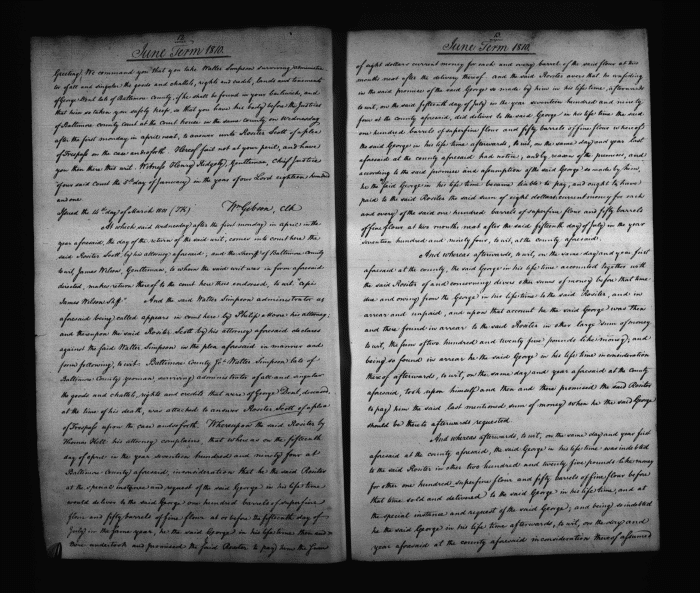 12
June Term 1810.
Greeting, We command you that you take Walter Simpson surviving administra
tor of all and singular the goods and chattels, rights and credits, lands and tenements
of George Deal late of Baltimore County, if he shall be found in your bailiwick, and
him so taken you safely keep, so that you have his body before the Justices
of Baltimore County Court at the Court house in the same county on Wednesday
after the first monday in april next, to answer unto Rossiter Scott of a plea
of Trespass on the case and so forth. Hereof fail not at your peril, and have
you then there this writ. Witness Henry Ridgely, Gentleman, Chief Justice
of our said Court the day of January in the year of our Lord eighteen hundred
and one
Issued the 14th day of March 1801 Wm Gibson, Clk
At which said Wednesday after the first monday in april in the
year aforesaid, the day of the return of the said writ, comes into court here the
said Rossiter Scott, by his attorney aforesaid; and the sheriff of Baltimore County
to wit James Wilson, Gentleman, to whom the said writ was in form aforesaid
directed, makes return thereof to the court here thus endorsed, to wit "Cepi
James Wilson Shff" And the said Walter Simpson administrator as
aforesaid being called appears in court here by Philip Moore his attorney;
and thereupon the said Rossiter Scott by his attorney aforesaid declares
against the said Walter Simpson in the plea aforesaid in manner and
form following, to wit: Baltimore County Sc. Walter Simpson late of
Baltimore County yeoman, surviving administrator of all and singular
the goods and chattels, rights and credits that were of George Deal, deceased,
at the time of his death, was attached to answer Rossiter Scott of a plea
of Trespass upon the case and so forth. Whereupon the said Rossiter by
Thomas Hall his attorney complains, that whereas on the fifteenth
day of april in the year seventeen hundred and ninety four at
Baltimore County aforesaid, in consideration that he the said Rossiter
at the special instance and request of the said George in his life time
would deliver to the said George one hundred barrels of superfine
flour and fifty barrels of fine flour at or before the fifteenth day of
July in the same year, he the said George in his life time then and
there undertook and promised the said Rossiter to pay him the sum
13
June Term 1810.
of eight dollars current money for each and every barrel of the said flour at six
months next after the delivery thereof. and the said Rossiter avers that he confiding
in the said promise of the said George so made by him in his life time, afterwards
to wit, on the said fifteenth day of July in the year seventeen hundred and ninety
four at the county aforesaid, did deliver to the said George in his life time the said
one hundred barrels of superfine flour and fifty barrels of fine flour whereof
the said George in his life time, afterwards, to wit, on the same day and year last
aforesaid at the county aforesaid had notice; and by reason of the premises, and
according to the said promise and assumption of the said George so made by them,
he the said George in his life time became liable to pay, and ought to have
paid to the said Rossiter the said sum of eight dollars current money for each
and every of the said one hundred barrels of superfine flour and fifty barrels
of fine flour, at six months next after the said fifteenth day of July in the year
seventeen hundred and ninety four, to wit, at the county aforesaid.
And whereas afterwards, to wit, on the same day and year first
aforesaid at the county, the said George in his life time accounted together with
the said Rossiter of and concerning divers other sums of money before that time
due and owing from the George in his life time to the said Rossiter, and in
arrear and unpaid, and upon that account he the said George was then
and there found in arrear to the said Rossiter in other large sum of money
to wit, the sum of two hundred and twenty five pounds like money; and
being so found in arrear he the said George in his life time in consideration
thereof afterwards, to wit, on the same day and year aforesaid at the county
aforesaid, took upon himself and then and there promised the said Rossiter
to pay him the said last mentioned sum of money when he the said George
should be thereto afterwards requested.
And whereas afterwards, to wit, on the same day and year first
aforesaid at the county aforesaid, the said George in his life time was indebted
to the said Rossiter in other two hundred and twenty five pounds like money
for other one hundred superfine flour and fifty barrels of fine flour before
that time sold and delivered to the said George in his life time, and at
the special instance and request of the said George; and being so indebted
he the said George in his life time afterwards, to wit, on the day and
year aforesaid at the county aforesaid in consideration thereof assumed